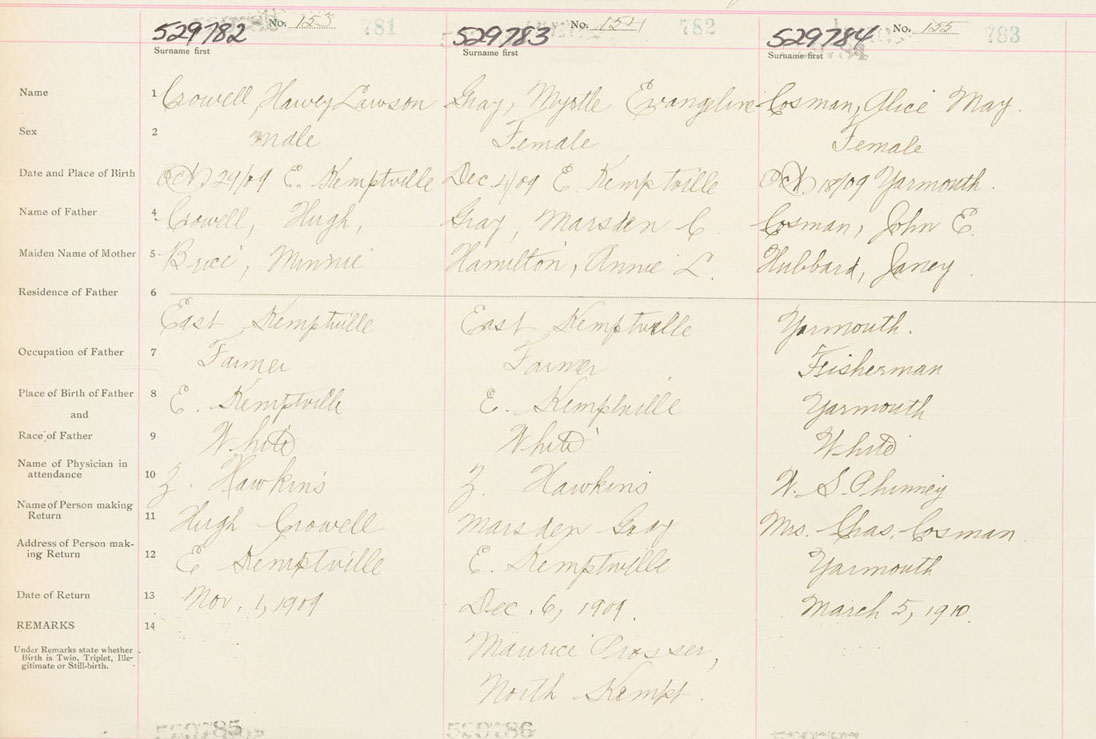 529782 No. 153 781
529783 No. 154 782
529784 No. 155 783
Surname first
Surname first
Surname first
Name 1 Crowell, Harvey Lawson Gray, Myrtle Evangline Cosman, Alice May.
Sex 2 male Female Female
Date and Place of Birth Oct 29/09 E. Kemptville Dec 4/09 E. Kemptville Oct 18/09 Yarmouth.
Name of Father 4 Crowell, Hugh, Gray, Marsden C. Cosman, John E.
Maiden Name of Mother 5 Minnie Hamilton, Annie L. Hubbard, Janey
Residence of Father 6
East Kemptville East Kemptville Yarmouth.
Occupation of Father 7 Farmer Farmer Fisherman
Place of Birth of Father 8 E. Kemptville E. Kemptville Yarmouth
and
Race of Father 9 White White White
Name of Physician in
attendance 10 Z. Hawkins Z. Hawkins W. S. Phinney
Name of Person making
Return 11 Hugh Crowell Marsden Gray Mrs. Chas. Cosman
Address of Person mak-
ing Return 12 E Kemptville E. Kemptville Yarmouth
Date of Return 13 Nov. 1, 1909 Dec. 6, 1909. March 5, 1910.
REMARKS 14
Under Remarks state whether
Birth is Twin, Triplet, Ille-
gitimate or Still-birth.
Maurice Prosser,
North Kempt.
529785 529786